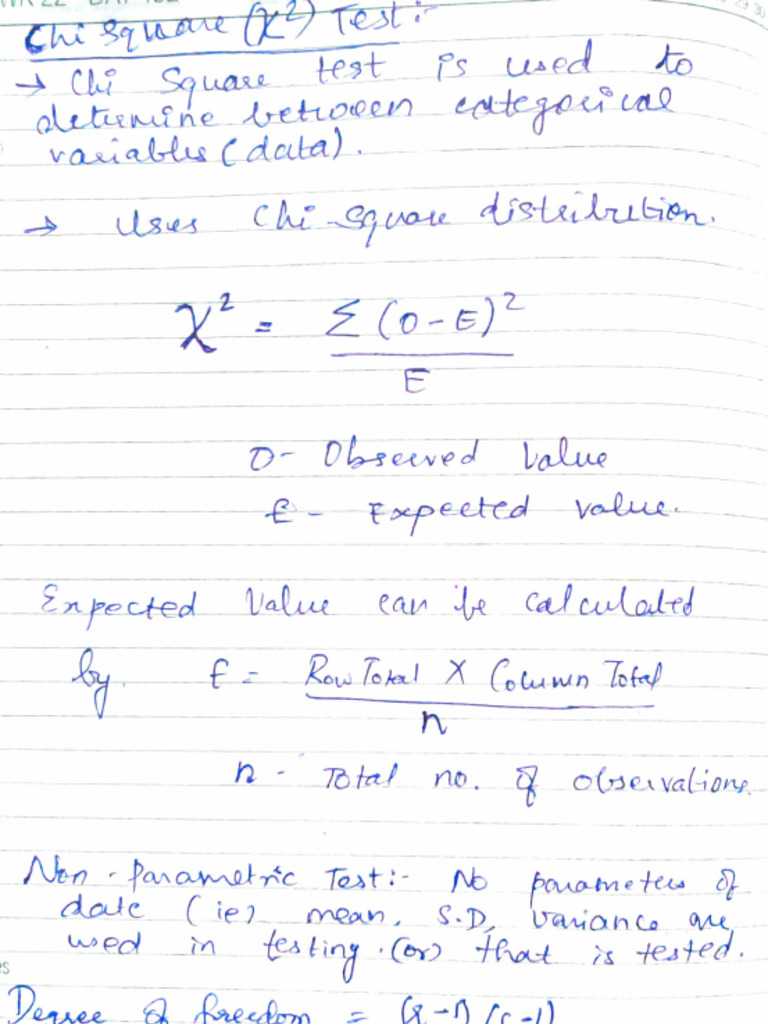 Chi Square (χ²) Test :-
→ Chi Square test is used to
determine between categorical
variables (data).
→ Uses Chi-square distribution.
χ² = Σ (O - E)²
E
O - Observed Value
E - Expected value.
Expected Value can be calculated
by. E = Row Total X Column Total
n
n - Total no. of observations.
Non-parametric Test:- No parameters of
date (ie) mean, S.D, variance are
used in testing. (or) that is tested.
Degree of freedom = (r-1) (c-1)